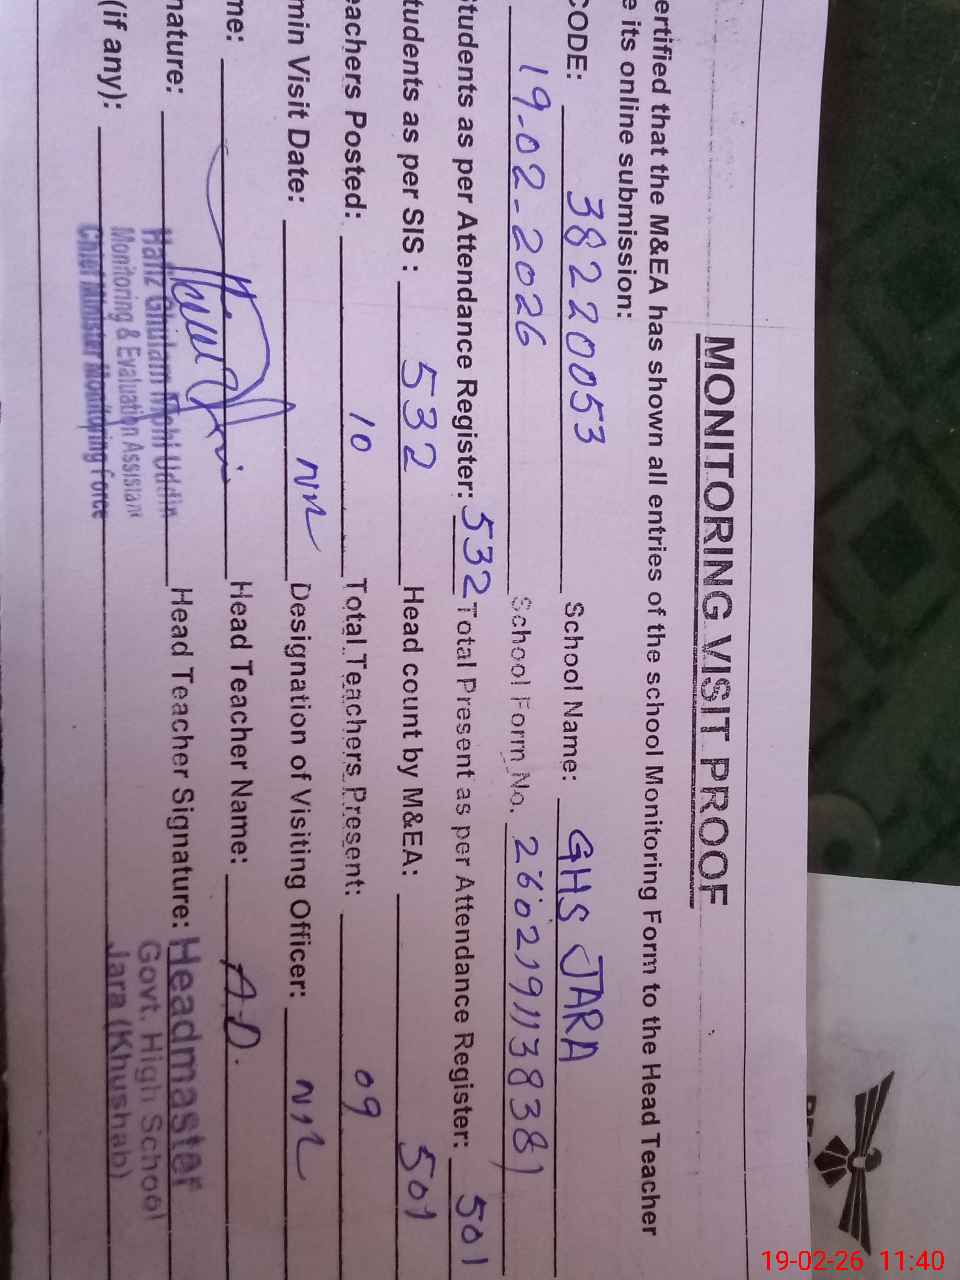 MONITORING VISIT PROOF
ertified that the M&EA has shown all entries of the school Monitoring Form to the Head Teacher
e its online submission:
CODE: 38220053 School Name: GHS JARA
19-02-2026 School Form No. 2602191138381
Students as per Attendance Register: 532 Total Present as per Attendance Register: 501
tudents as per SIS: 532 Head count by M&EA: 501
eachers Posted: 10 Total Teachers Present: 09
min Visit Date: Nil Designation of Visiting Officer: Nil
me: Head Teacher Name: A.D.
nature: Head Teacher Signature:
(if any):
Hafiz Ghulam Mohi Uddin
Monitoring & Evaluation Assistant
Chief Minister Monitoring Force
Headmaster
Govt. High School
Jara (Khushab)
19-02-26 11:40